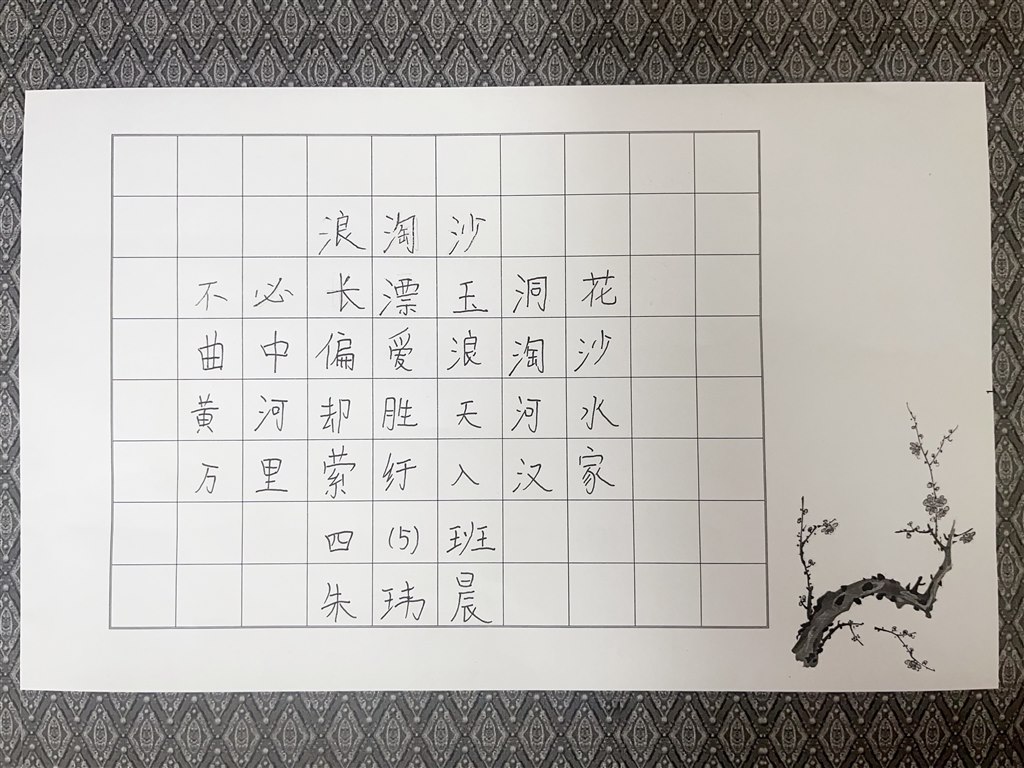 浪淘沙
不必长漂玉洞花
曲中偏爱浪淘沙
黄河却胜天河水
万里萦纡入汉家
四(5)班
朱玮晨